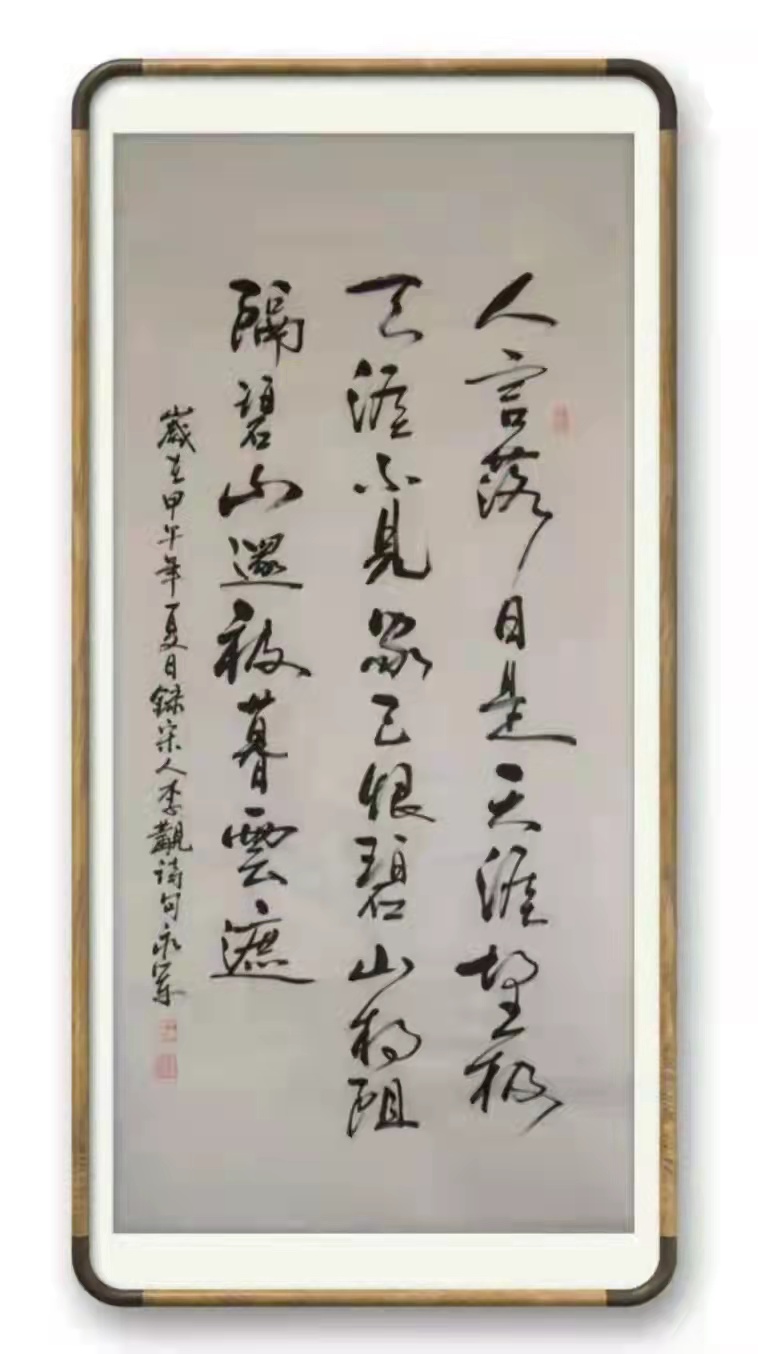 人言落日是天涯望极
天涯不見家已恨碧山相阻
隔碧山還被暮雲遮
歲在甲午年夏日録宋人李覯诗句永军